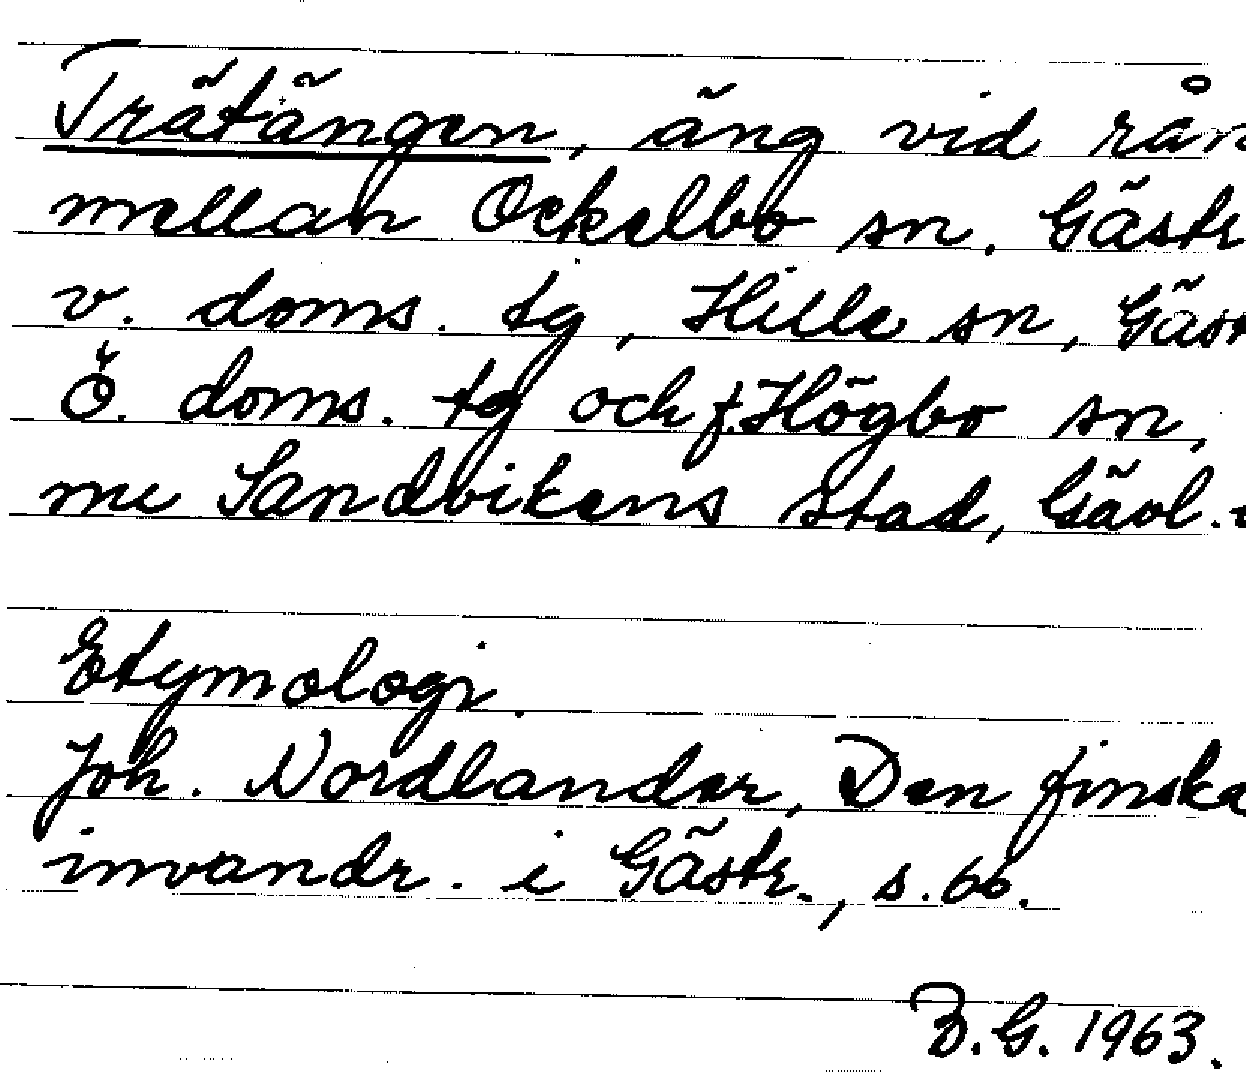 Trätängen, äng vid rån
mellan Ockelbo sn. Gästr
v. doms. tg, Hille sn, Gäst
Ö. doms. tg och f. Högbo sn,
mu Sandvikens stad, Gävl.
Etymologi.
Joh. Nordlander, Den finska
invandr. i Gästr., s. 66.
B.G. 1963.